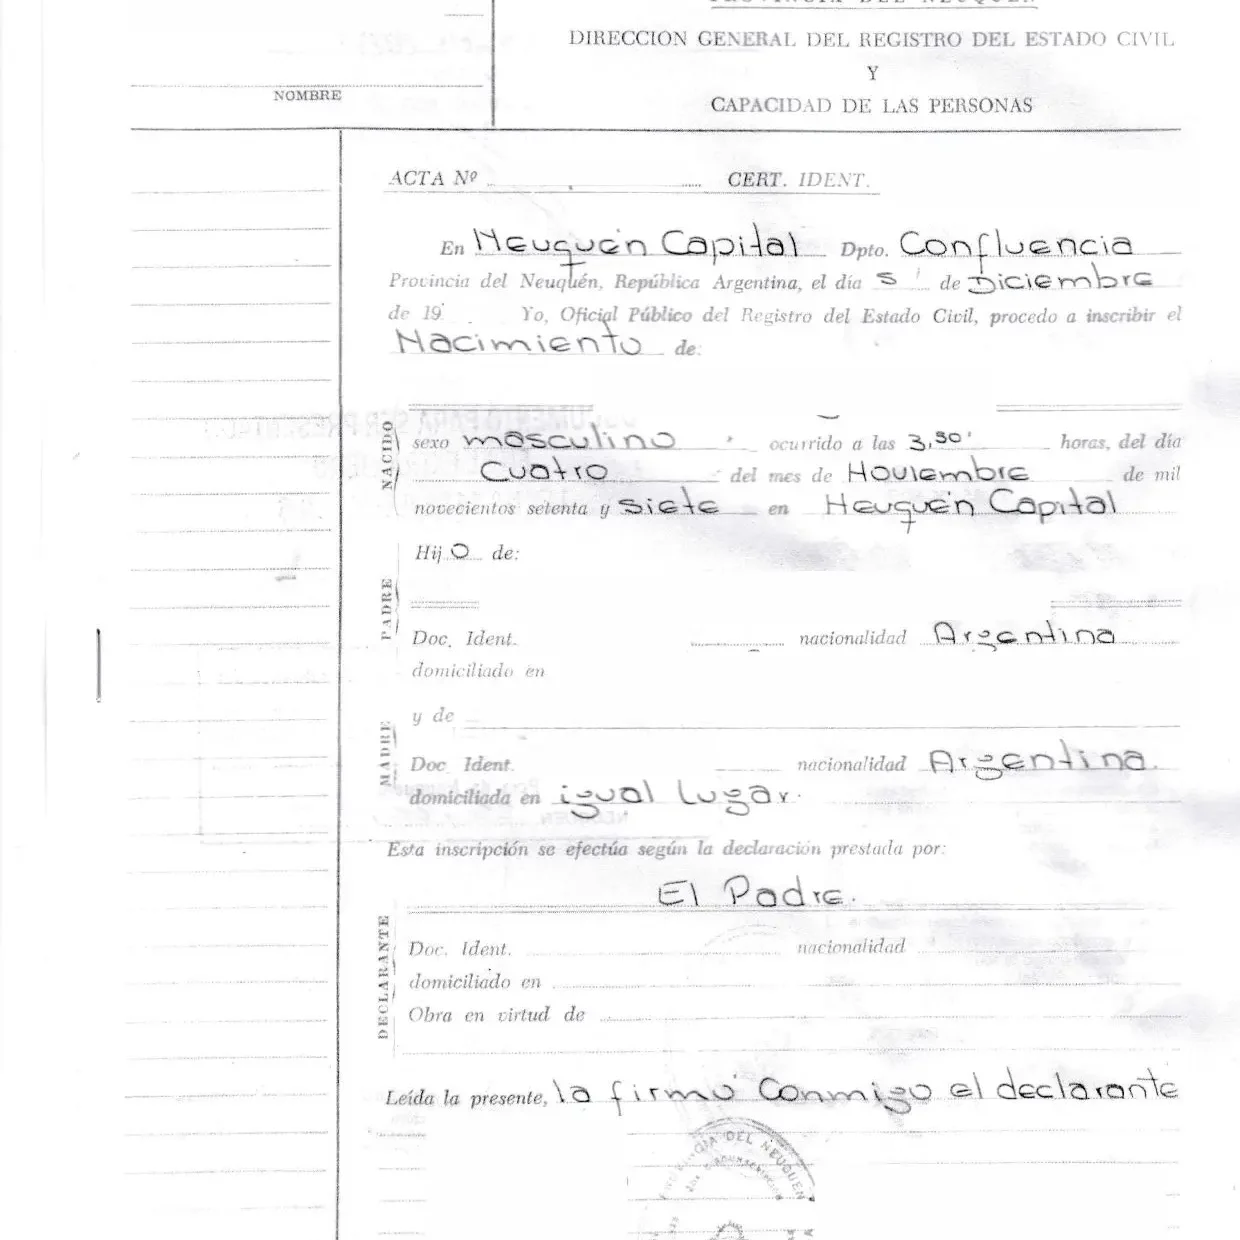 PROVINCIA DEL NEUQUEN
DIRECCION GENERAL DEL REGISTRO DEL ESTADO CIVIL
Y
CAPACIDAD DE LAS PERSONAS
NOMBRE
ACTA Nº CERT. IDENT.
En Neuquén Capital Dpto. Confluencia
Provincia del Neuquén, República Argentina, el día 5 de Diciembre
de 19 Yo, Oficial Público del Registro del Estado Civil, procedo a inscribir el
Nacimiento de:
NACIDO
sexo masculino ocurrido a las 3,30' horas, del día
Cuatro del mes de Noviembre de mil
novecientos setenta y siete en Neuquén Capital
Hijo de:
PADRE
Doc. Ident. nacionalidad Argentina
domiciliado en
y de
MADRE
Doc. Ident. nacionalidad Argentina.
domiciliada en igual lugar.
Esta inscripción se efectúa según la declaración prestada por:
El Padre.
DECLARANTE
Doc. Ident. nacionalidad
domiciliado en
Obra en virtud de
Leída la presente, la firmó Conmigo el declarante
DEL NEUQUEN